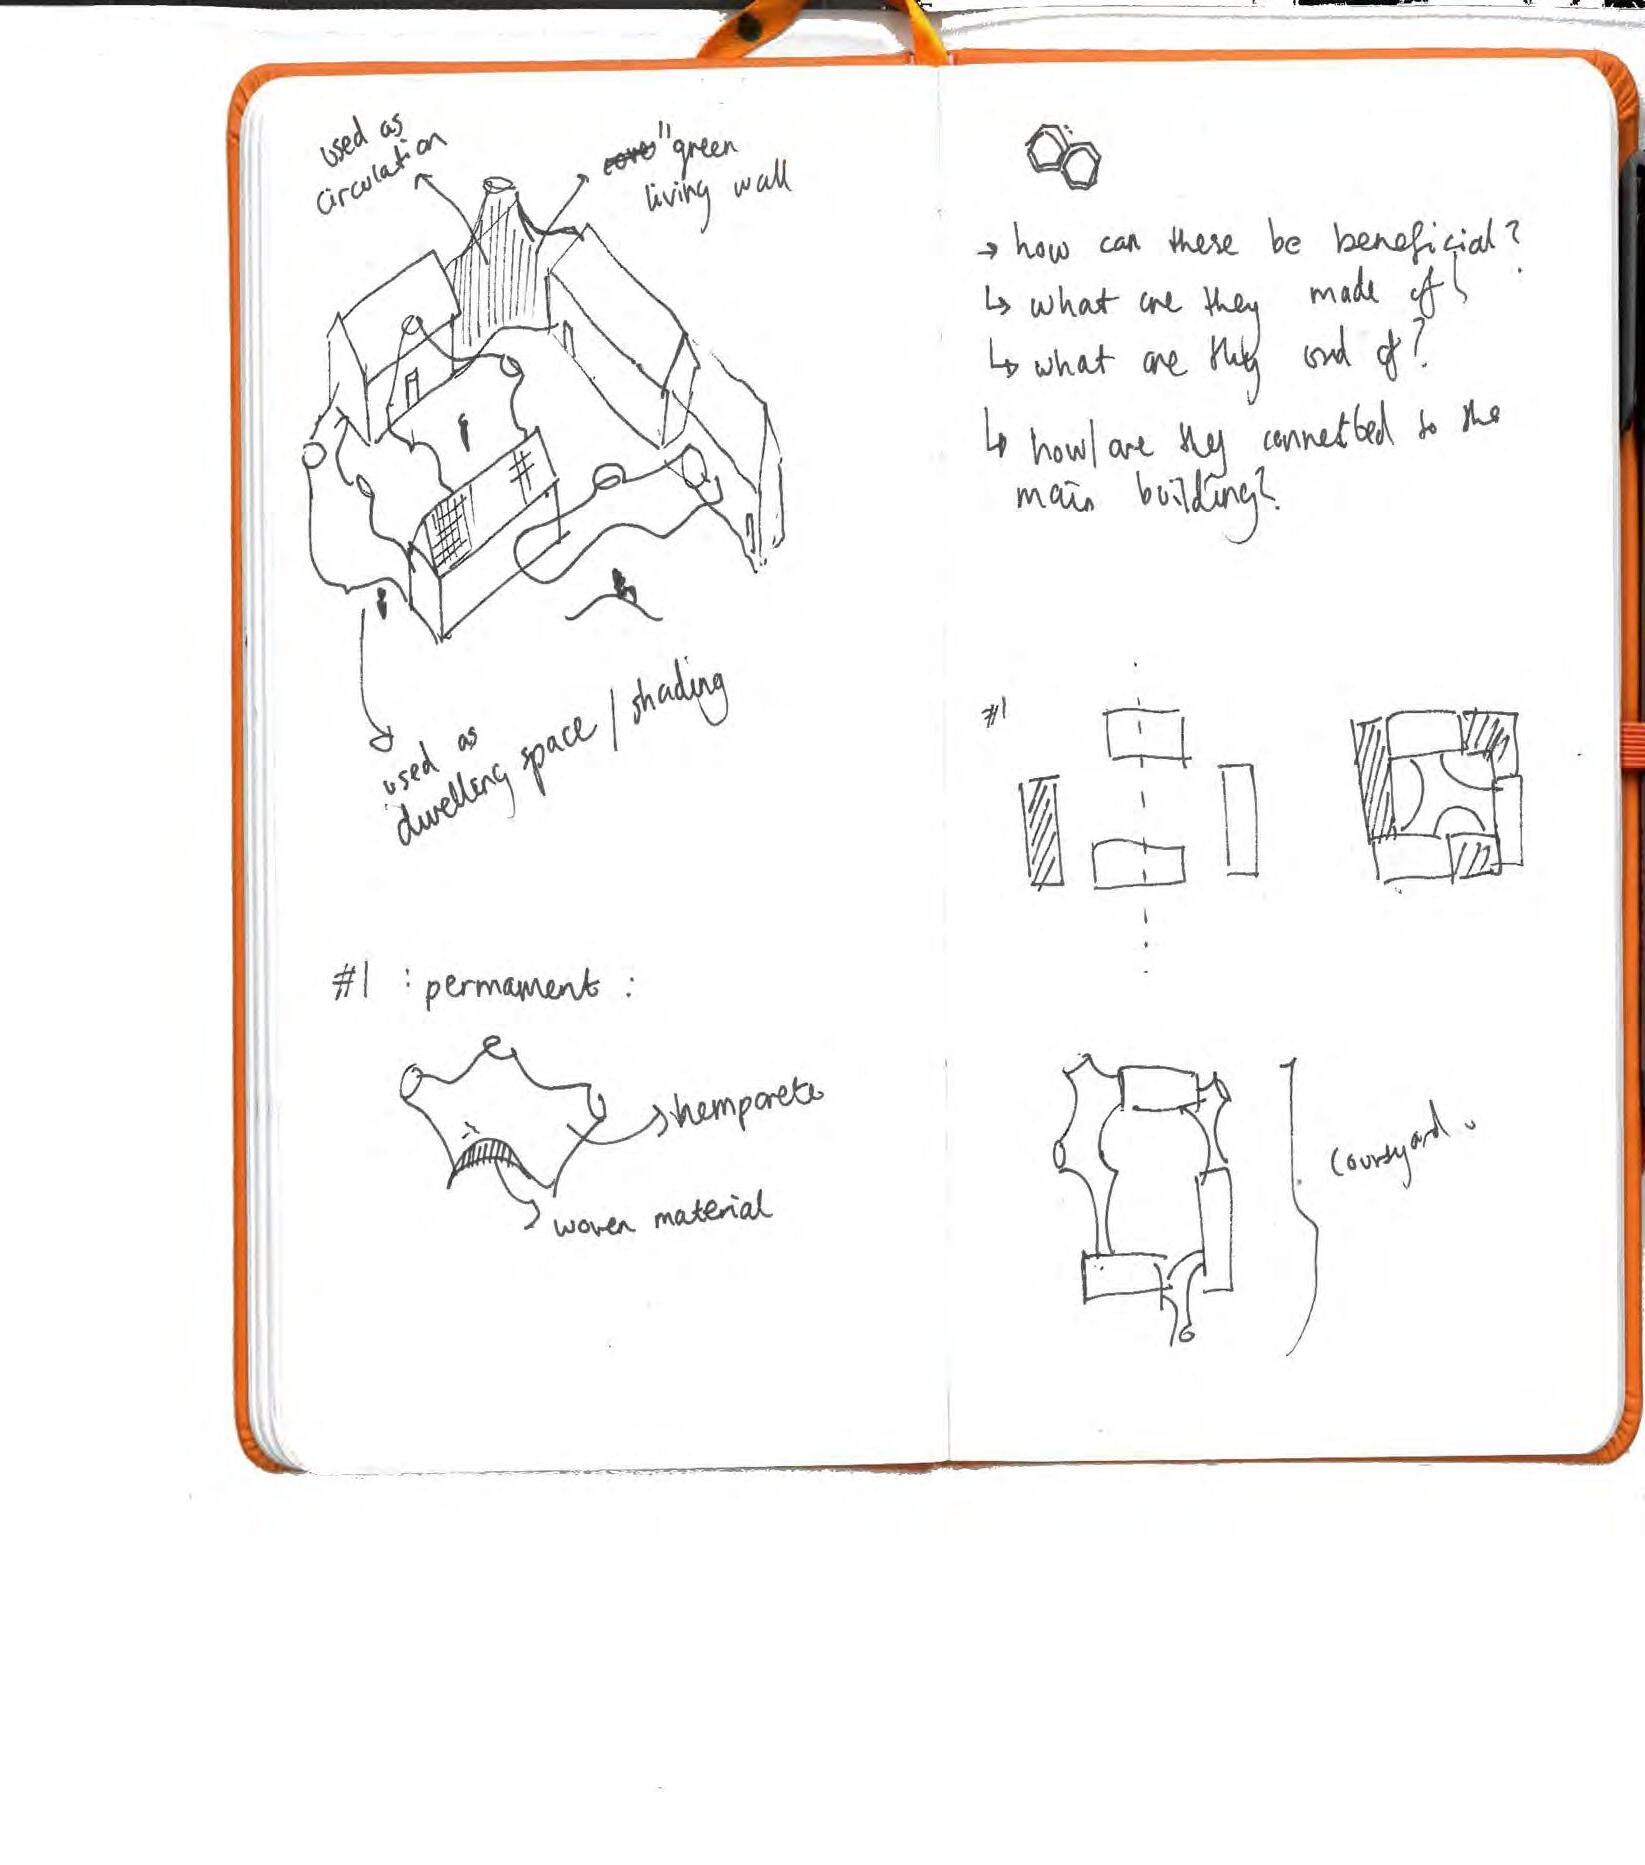 used as
circulation
"green
living wall
used as
dwelling space / shading
#1 : permament :
hempcrete
woven material
→ how can these be beneficial?
↳ what are they made of?
↳ what are they of?
↳ how/are they connected to the
main building?
#1
courtyard.